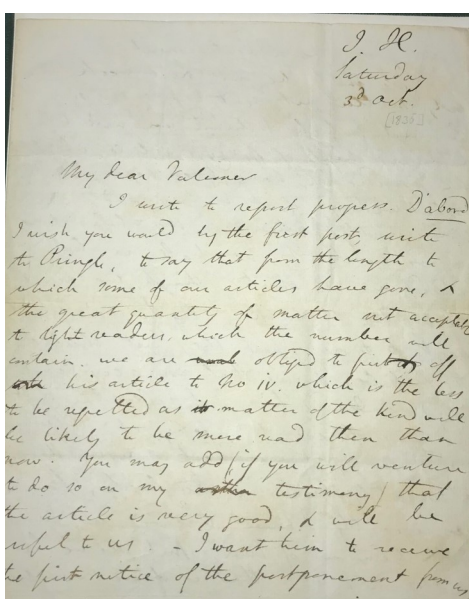 I. H.
Saturday
3d Oct.
[1835]
My dear Falconer
I write to report progress. D'abord
I wish you would by the first post, write
to Pringle, to say that from the length to
which some of our articles have gone, &
the great quantity of matter not acceptable
to light readers, which the number will
contain, we are obliged to put off
his article to No iv. which is the less
to be regretted as matter of the kind will
be likely to be more read then than
now. You may add (if you will venture
to do so on my testimony) that
the article is very good, & will be
useful to us. – I want him to receive
the first notice of the postponement from us